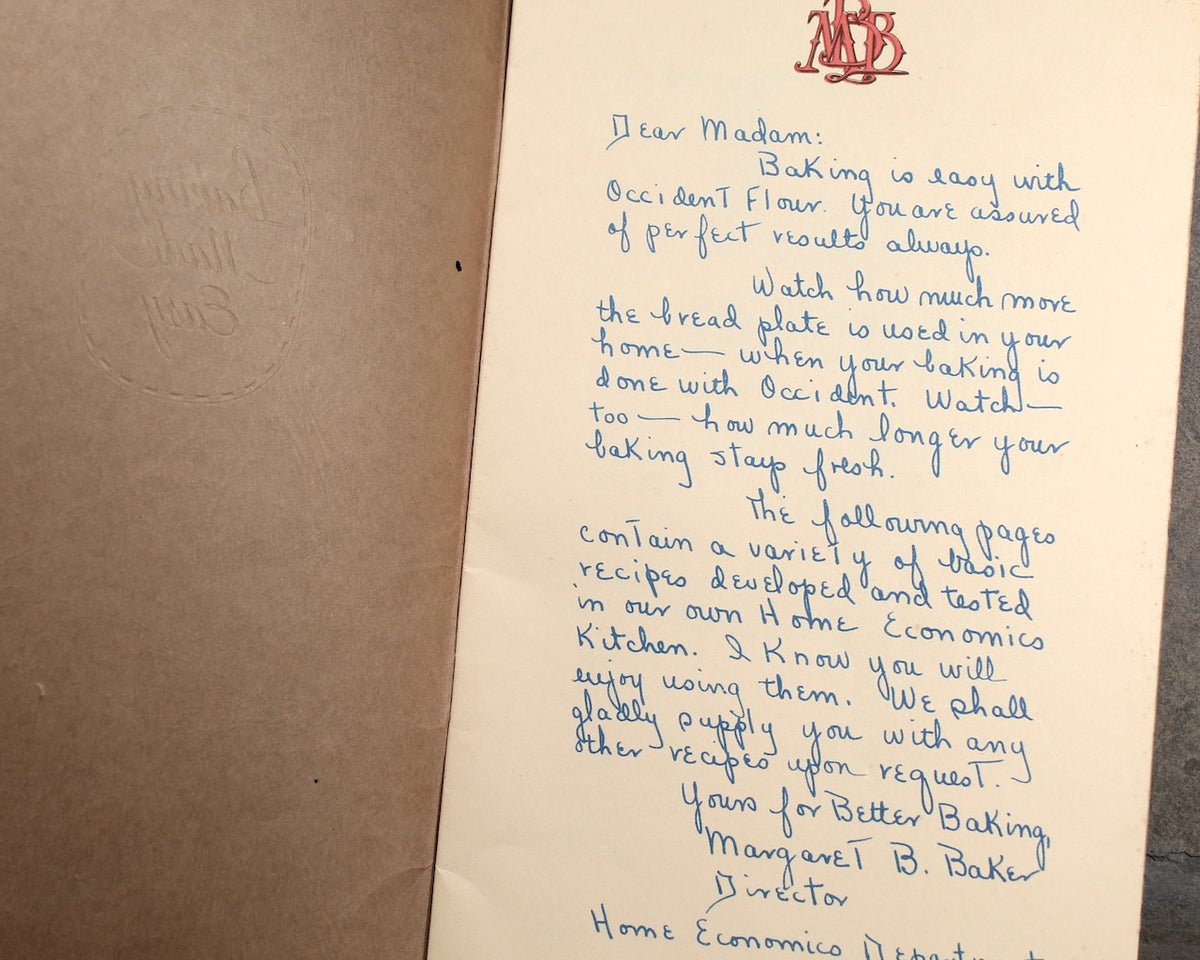 Baking
Made
Easy
MBB
Dear Madam:
Baking is easy with
Occident Flour. You are assured
of perfect results always.
Watch how much more
the bread plate is used in your
home — when your baking is
done with Occident. Watch —
too — how much longer your
baking stays fresh.
The following pages
contain a variety of basic
recipes developed and tested
in our own Home Economics
Kitchen. I know you will
enjoy using them. We shall
gladly supply you with any
other recipes upon request.
Yours for Better Baking,
Margaret B. Baker
Director
Home Economics Department